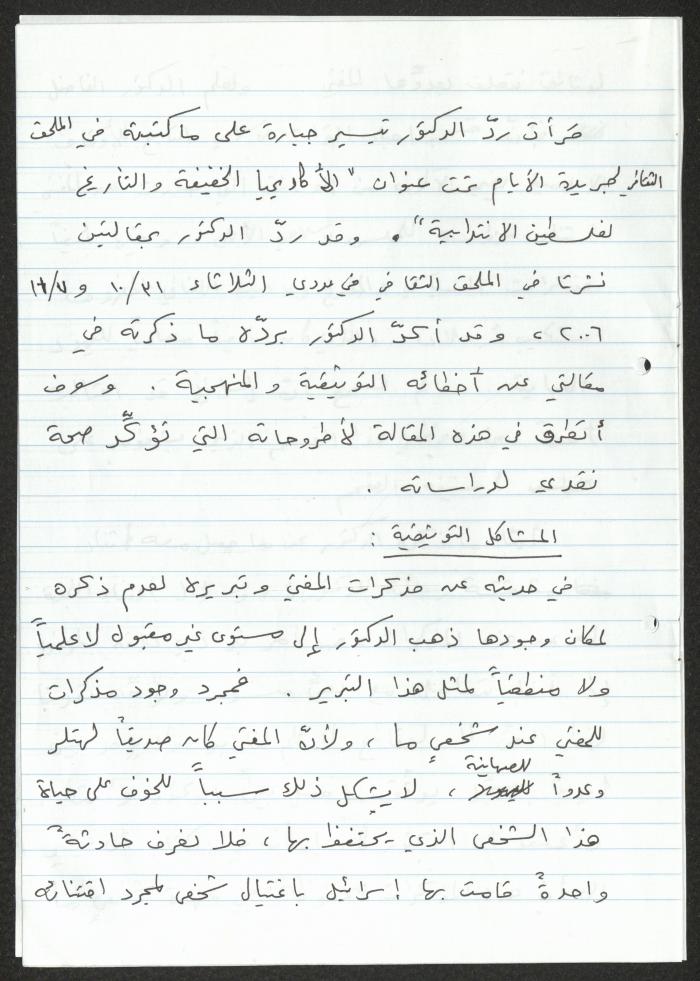 قرأت ردّ الدكتور تيسير جبارة على ما كتبته في الملحق
الثقافي لجريدة الأيام تحت عنوان "الأكاديميا الخفيفة والتأريخ
لفلسطين الانتدابية". وقد ردّ الدكتور بمقالتين
نشرتا في الملحق الثقافي في عددي الثلاثاء ١٠/٣١ و ١١/٧
٢٠٠٦، وقد أكدّ الدكتور بردّه ما ذكرته في
مقالتي عن أخطائه التوثيقية والمنهجية. وسوف
أتطرق في هذه المقالة لأطروحاته التي تؤكّد صحة
نقدي لدراساته.
المشاكل التوثيقية:
في حديثه عن مذكرات المفتي وتبريره لعدم ذكره
لمكان وجودها ذهب الدكتور إلى مستوى غير مقبول لا علمياً
ولا منطقياً لمثل هذا التبرير. فمجرد وجود مذكرات
للمفتي عند شخصٍ ما، ولأنّ المفتي كان صديقاً لهتلر
للصهاينة
وعدواً ، لا يشكل ذلك سبباً للخوف على حياة
هذا الشخص الذي يحتفظ بها، فلا نعرف حادثةً
واحدةً قامت بها إسرائيل باغتيال شخص لمجرد اقتنائه